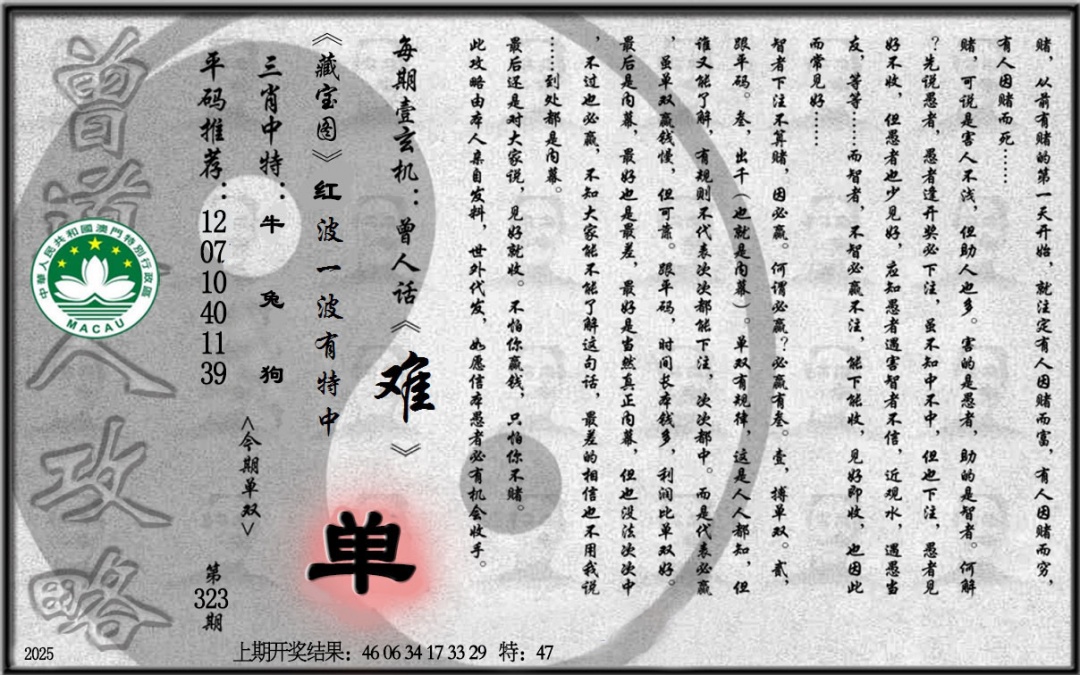 赌，从前有赌的第一天开始，就注定有人因赌而富，有人因赌而穷，
有人因赌而死……
赌，可说是害人不浅，但助人也多。害的是愚者，助的是智者。何解
？先说愚者，愚者逢开奖必下注，虽不知中不中，但也下注，愚者见
好不收，但愚者也少见好，应知愚者遇害智者不信，近观水，遇愚当
友，等等……而智者，不智必赢不注，能下能收，见好即收，也因此
而常见好……
智者下注不算赌，因必赢。何谓必赢？必赢有叁。壹，搏单双。贰，
跟平码。叁，出千（也就是内幕）。单双有规律，这是人人都知，但
谁又能了解，有规则不代表次次都能下注，次次都中。而是代表必赢
，虽单双赢钱慢，但可靠。跟平码，时间长本钱多，利润比单双好。
最后是内幕，最好也是最差，最好是当然真正内幕，但也没法次次中
，不过也必赢，不知大家能不能了解这句话，最差的相信也不用我说
……到处都是内幕。
最后还是对大家说，见好就收。不怕你赢钱，只怕你不赌。
此攻略由本人亲自发料，世外代发，如愿信本愚者必有机会收手。
每期壹玄机：曾人话《难》
《藏宝图》红波一波有特中
单
三肖中特：牛 兔 狗
<今期单双>
平码推荐：
12
07
10
40
11
39
第
323
期
曾道人攻略
中華人民共和國澳門特別行政區
MACAU
2025
上期开奖结果：46 06 34 17 33 29 特：47